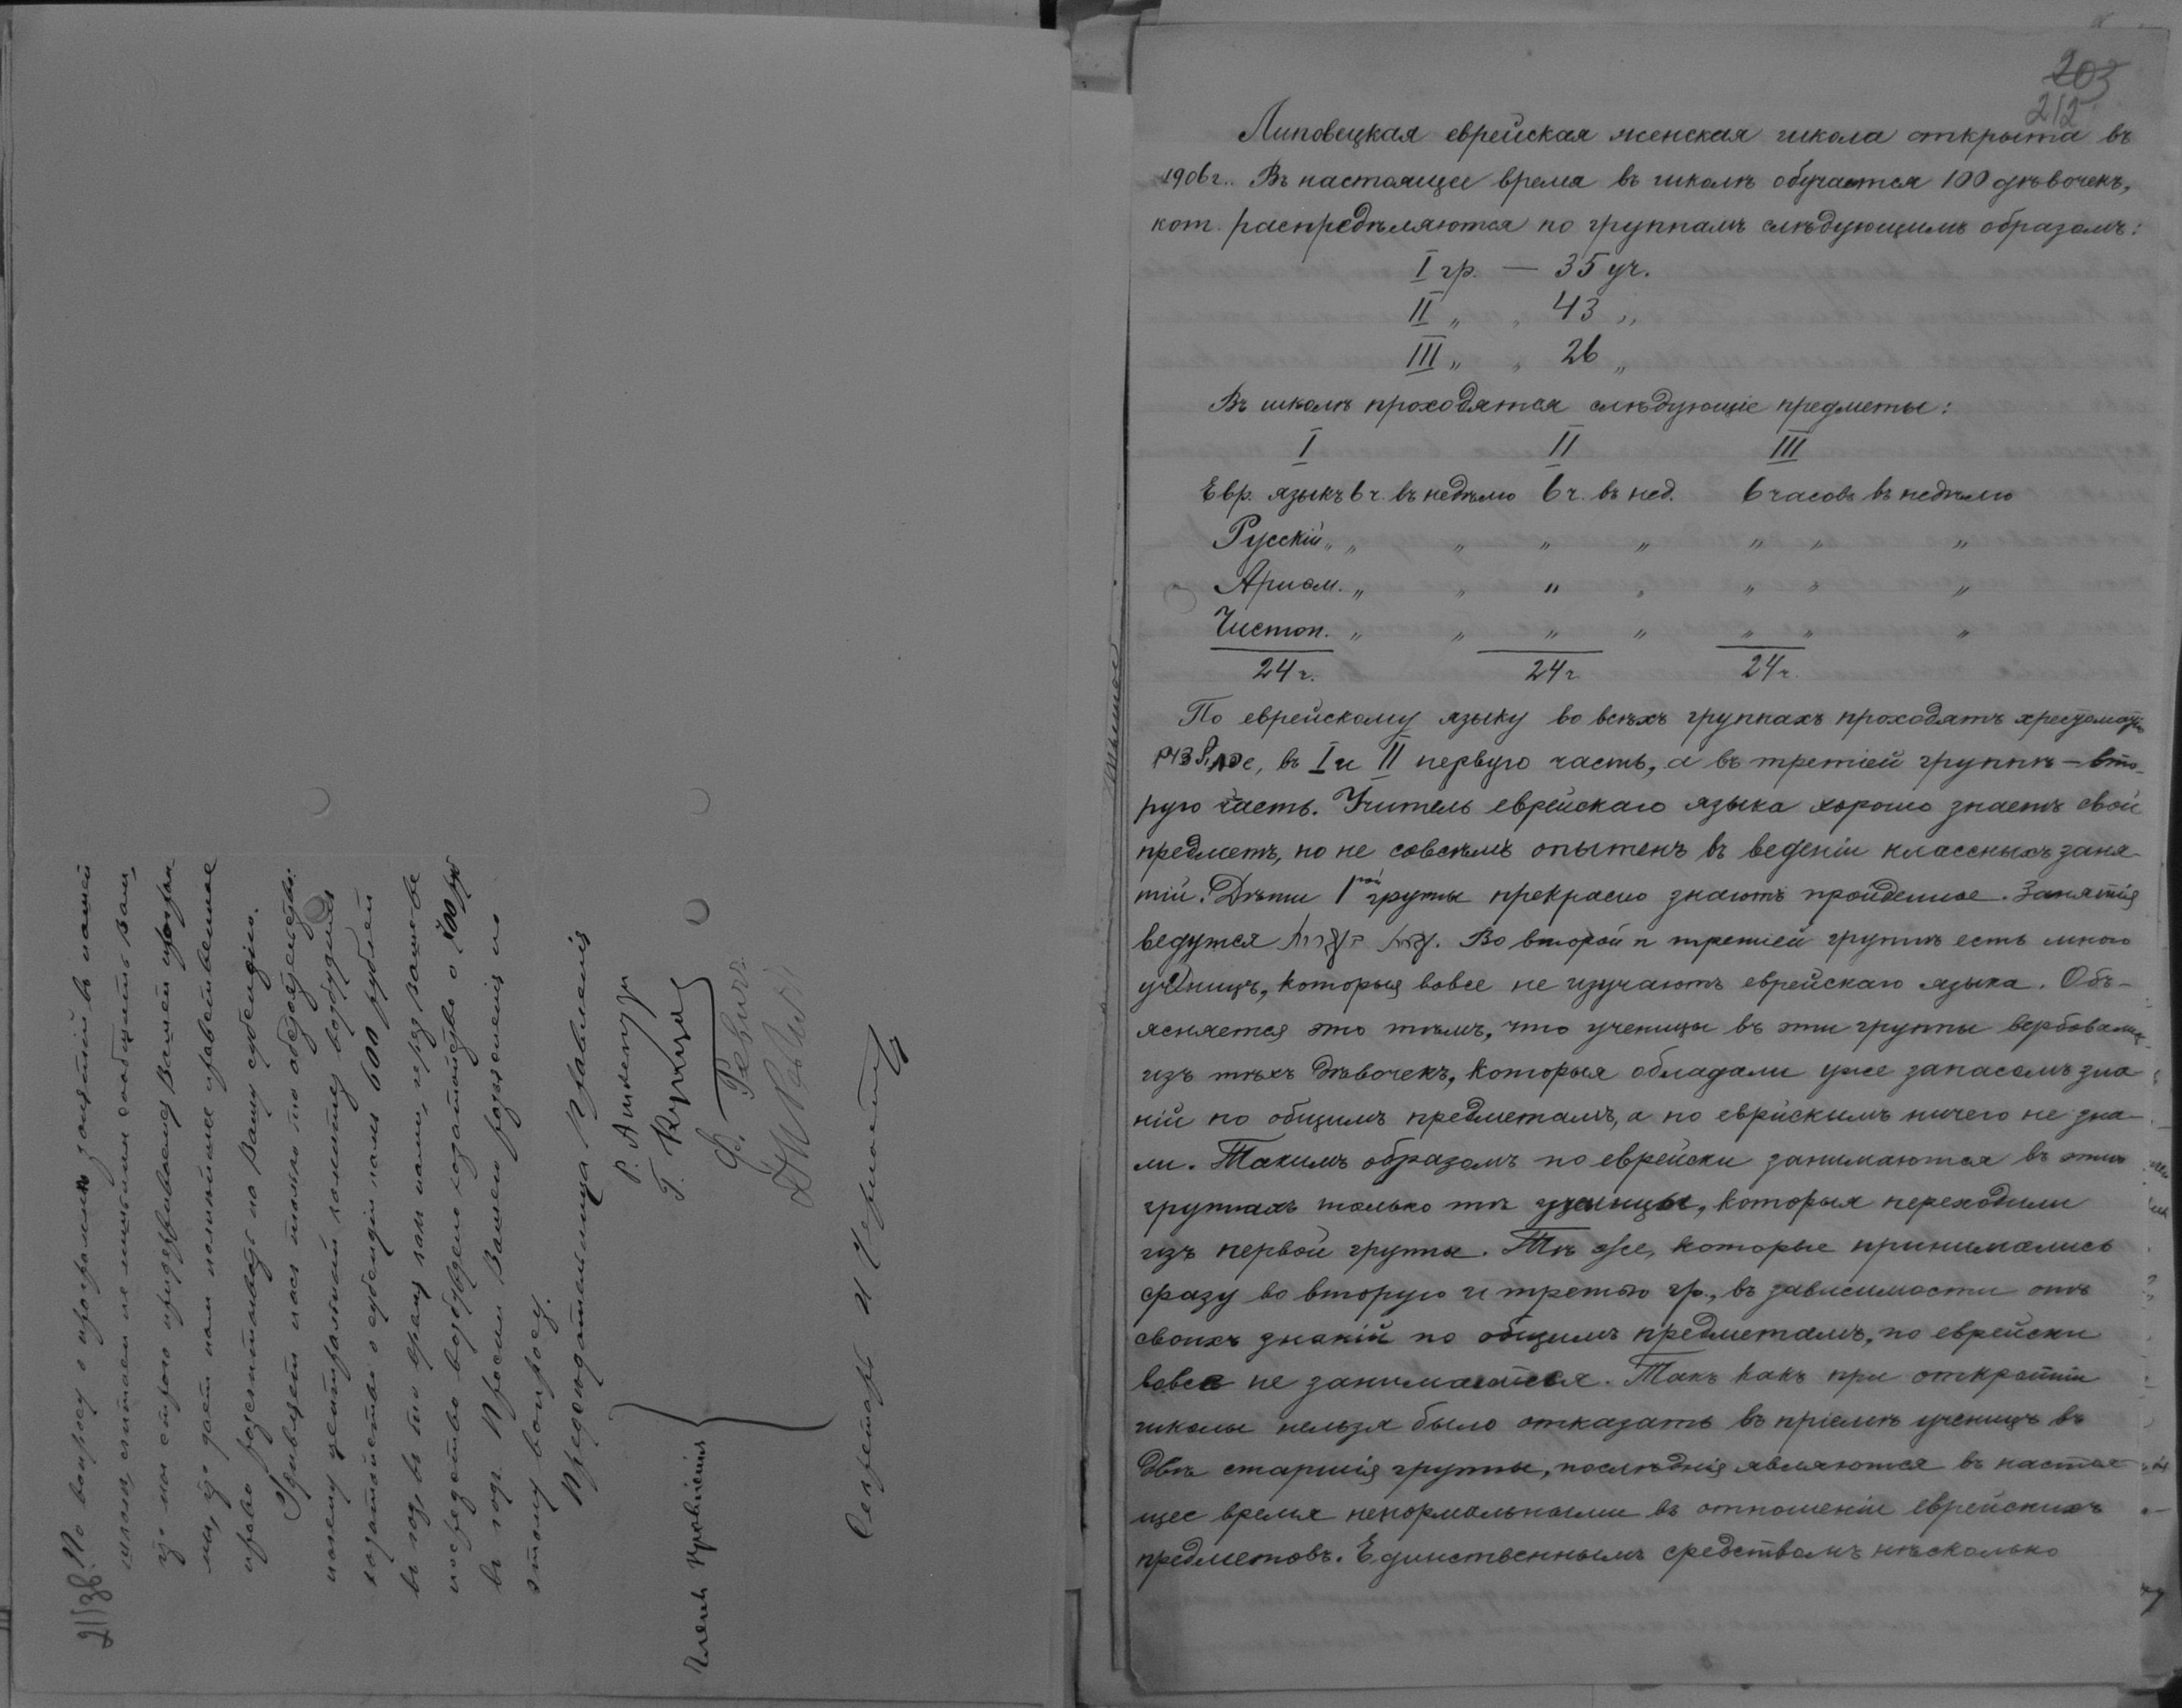 211об
По вопросу о программѣ занятій въ нашей
школѣ считаем не лишним сообщить Вам,
что мы строго придерживаемся Вашей програм
мы, что дает нам полнѣйшее нравственное
право разсчитывать на Вашу субсидію.
Удивляет нас только то обстоятельство:
почему центральный комитет возбудил
ходатайство о субсидіи нам 600 рублей
в год, в то время как нами, через ваше же
посредство возбуждено ходатайство о руб
в год. Просим Вашего разъясненія по
этому вопросу.
Предсѣдательница Правленія
Члены Правленія
Р.
Г.
Ф.
Секретарь И
203
212
Липовецкая еврейская женская школа открыта въ
1906г.. Въ настоящее время въ школѣ обучается 100 дѣвочекъ,
кот. распредѣляются по группамъ слѣдующимъ образомъ:
I гр. — 35 уч.
II „ „ 43 „
III „ „ 26 „
Въ школѣ проходятся слѣдующіе предметы:
I II III
Евр. языкъ 6 ч. въ недѣлю 6 ч. въ нед. 6 часовъ въ недѣлю
Русскій „ „ „ „ „ „ „ „
Ариѳм. „ „ „ „ „ „ „
Чистоп. „ „ „ „ „ „ „
24 ч. 24 ч 24 ч.
По еврейскому языку во всѣхъ группахъ проходятъ хрестоматію
въ I и II первую часть, а въ третіей группѣ — вто-
рую часть. Учитель еврейскаго языка хорошо знаетъ свой
предметъ, но не совсѣмъ опытенъ въ веденіи классныхъ заня-
тій. Дѣти 1ой групы прекрасно знаютъ пройденное. Занятія
ведутся עברית בעברית. Во второй и третіей группѣ есть много
учениць, которыя вовсе не изучаютъ еврейскаго языка. Объ-
ясняется это тѣмъ, что ученицы въ эти группы вербовались
изъ тѣхъ дѣвочекъ, которыя обладали уже запасомъ зна
ній по общимъ предметамъ, а по еврйскимъ ничего не зна-
ли. Такимъ образомъ по еврейски занимаются въ этихъ
группахъ только тѣ ученицы, которыя переходили
изъ первой группы. Тѣ же, которые принимались
сразу во вторую и третью гр., въ зависимости отъ
своихъ знаній по общимъ предметамъ, по еврейски
вовсе не занимаются. Такъ какъ при открытіи
школы нельзя было отказать въ пріемѣ ученицъ въ
двѣ старшія группы, послѣднія являются въ настоя-
щее время ненормальными въ отношеніи еврейскихъ
предметовъ. Единственнымъ средствомъ нѣсколько